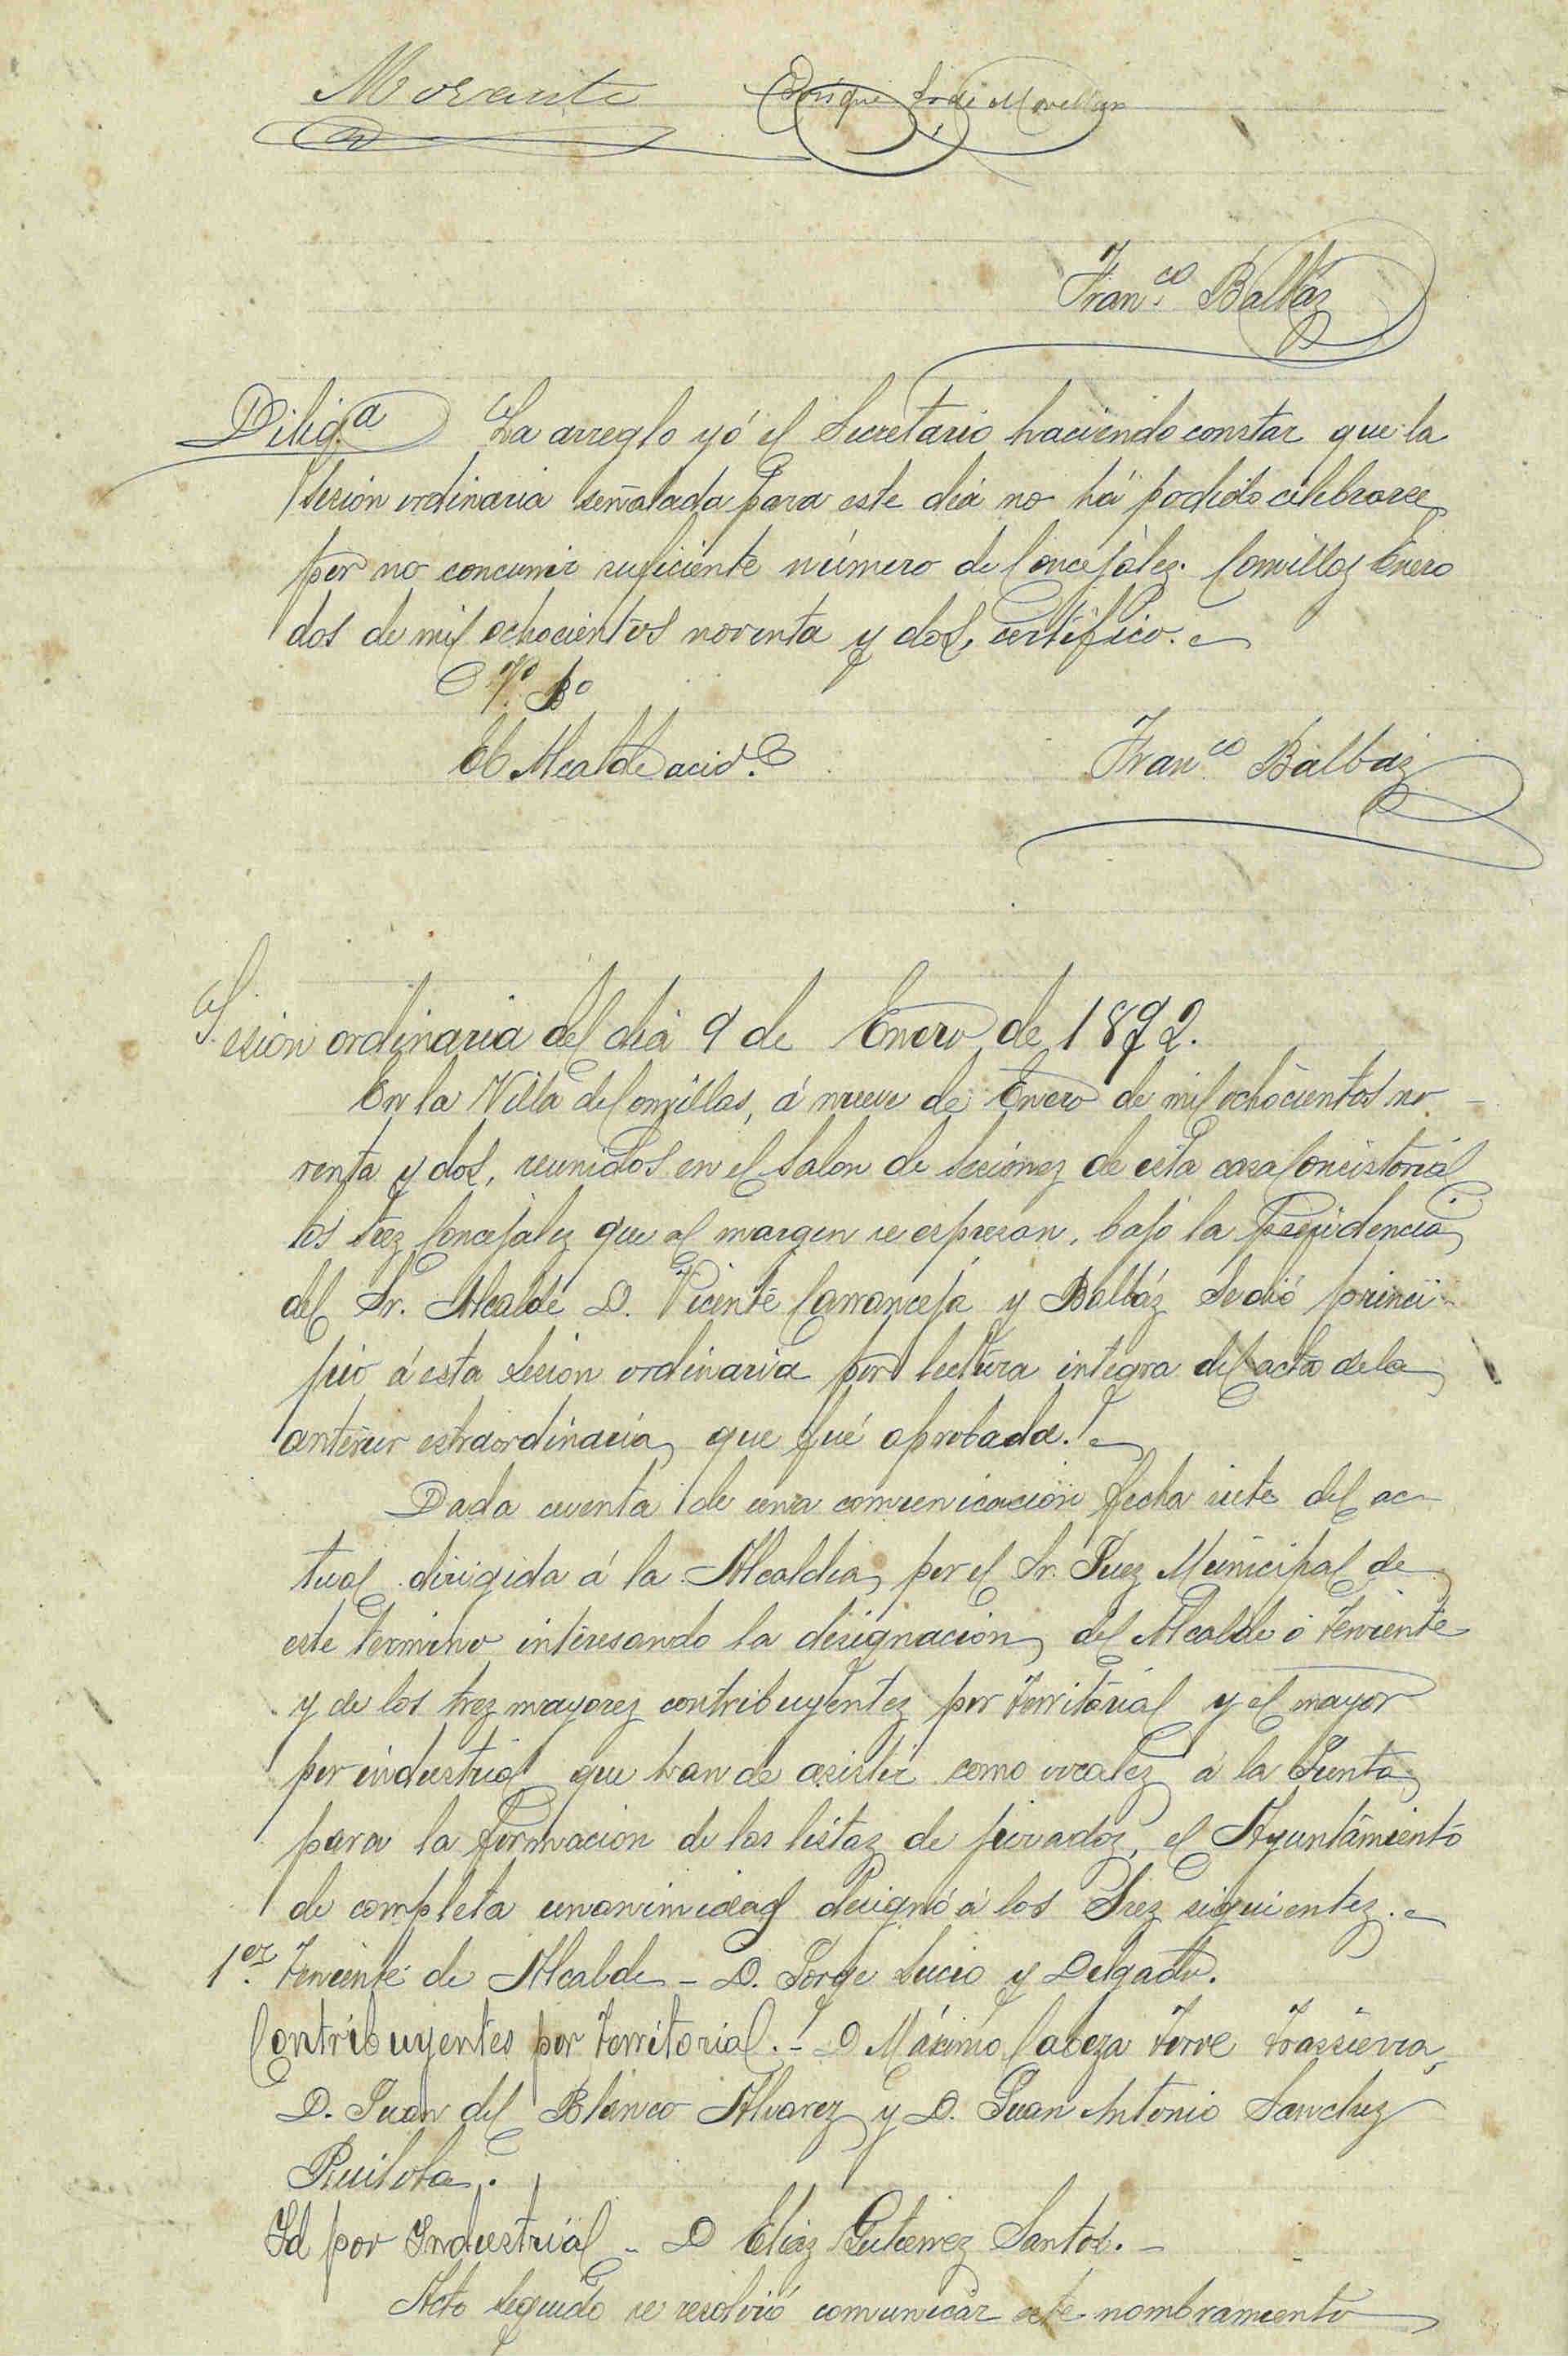 Morante Enrique S. de Movellan
Fran.co Balbáz
Dilig.a La arreglo yó el Secretario haciendo constar que la
Sesión ordinaria señalada para este diá no há podido celebrarse
por no concurrir suficiente número de Concejáles. Comillas Enero
dos de mil ochocientos noventa y dos, certifico.
Vº Bº
El Alcalde accid.
Fran.co Balbáz
Sesion ordinaria del diá 9 de Enero de 1892.
En la Villa de Comillas, á nueve de Enero de mil ochocientos no-
venta y dos, reunidos en el Salon de Sesiónez de esta casa Consistorial
los Srez Concejalez que al margen se espresan, bajó la presidencia
del Sr. Alcalde D. Vicente Carranceja y Balbáz Se dió princi-
pio á esta Sesion ordinaria por lectura integra del acta de la
anterior estraordinaria, que fué aprobada.
Dada cuenta de una comunicación fecha siete del ac-
tual dirigida á la Alcaldia, por el Sr. Juez Municipal de
este termino interesando la designación, del Alcalde ó Teniente
y de los trez mayorez contribuyentez por territorial y el mayor
por industrial que han de asistir como vocalez á la Junta,
para la formacion de las listaz de juradoz, el Ayuntamiento
de completa unanimidad designó á los Srez siguientez.
1er. Teniente de Alcalde - D. Jorge Lucio y Delgado.
Contribuyentes por territorial. - D Máximo Cabeza Torre Trassierra,
D. Juan del Blanco Alvarez y D. Juan Antonio Sanchez
Ruiloba.
Id por Industrial - D Eliaz Gutierrez Santos. -
Acto seguido se resolvió comunicar este nombramiento